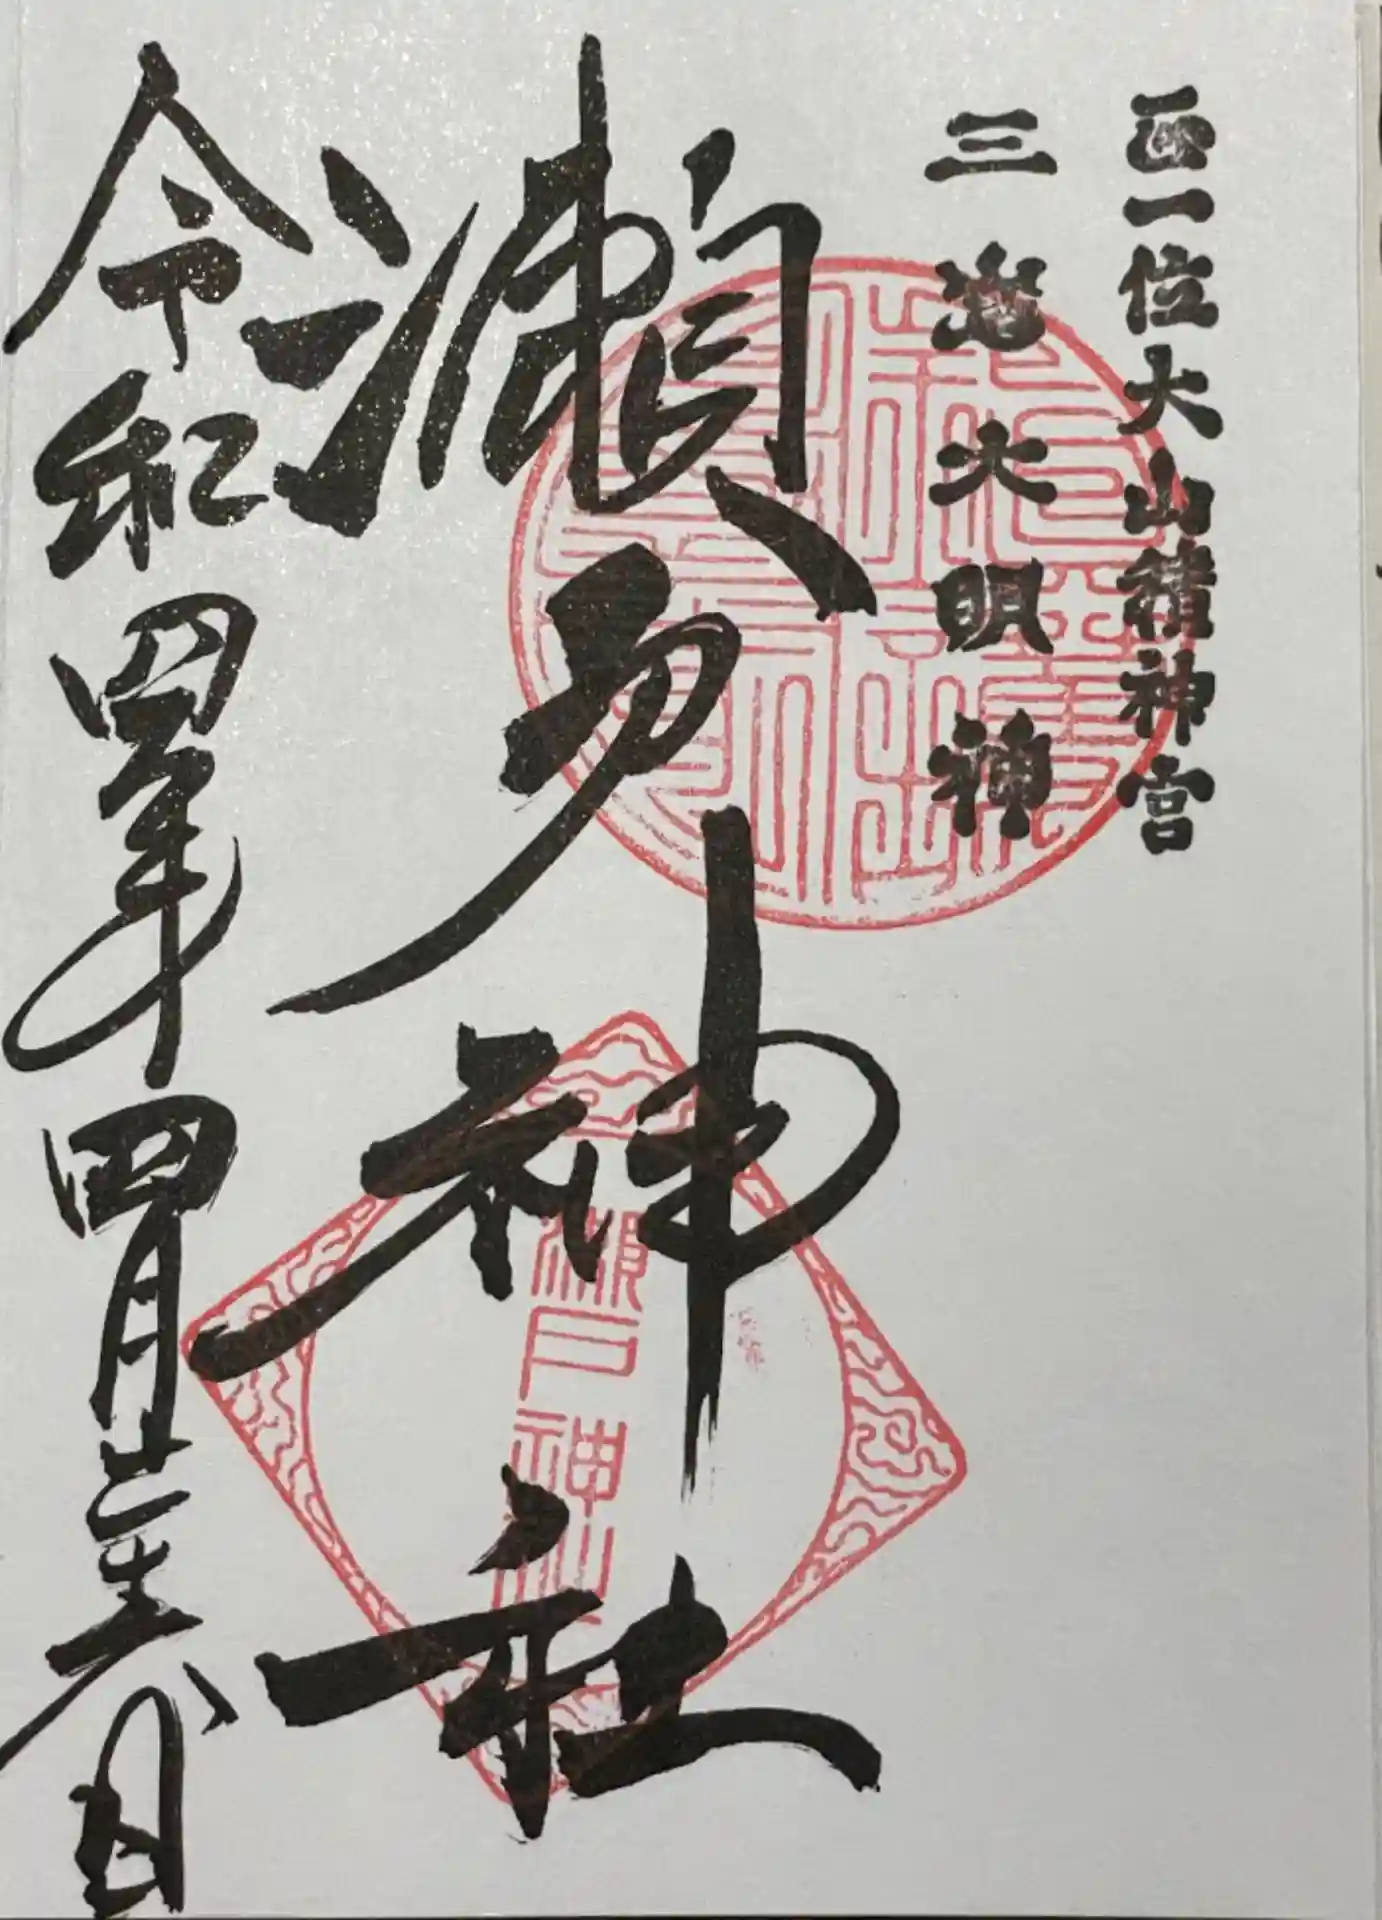 正一位大山積神宮
三嶌大明神
瀬戸神社
令和四年四月廿日
瀬戸神社